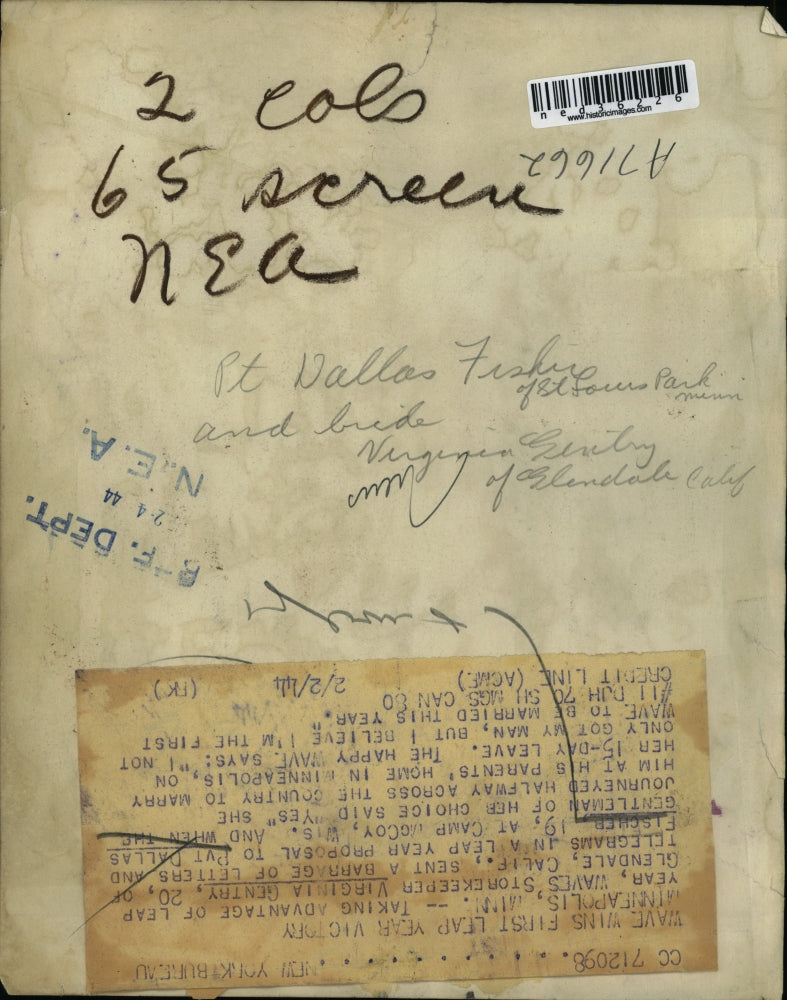 2 cols
65 screen
NEA
ned36226
www.historicimages.com
A71662
Pt Dallas Fisher
of St Louis Park
minn
and bride
Virginia Gentry
of Glendale Calif
N.E.A.
2-4 44
REF. DEPT.
CC 712098 . . . . . . . . . . NEW YORK BUREAU
WAVE WINS FIRST LEAP YEAR VICTORY
MINNEAPOLIS, MINN. -- TAKING ADVANTAGE OF LEAP
YEAR, WAVES STOREKEEPER VIRGINIA GENTRY, 20, OF
GLENDALE, CALIF., SENT A BARRAGE OF LETTERS AND
TELEGRAMS IN A LEAP YEAR PROPOSAL TO PVT DALLAS
FISCHER 19, AT CAMP MCCOY, WIS. AND WHEN THE
GENTLEMAN OF HER CHOICE SAID "YES" SHE
JOURNEYED HALFWAY ACROSS THE COUNTRY TO MARRY
HIM AT HIS PARENTS' HOME IN MINNEAPOLIS, ON
HER 15-DAY LEAVE. THE HAPPY WAVE SAYS: "I NOT
ONLY GOT MY MAN, BUT I BELIEVE I'M THE FIRST
WAVE TO BE MARRIED THIS YEAR."
#11 DJH 70 SH MGS CAN 80
CREDIT LINE (ACME) 2/2/44 (FK)